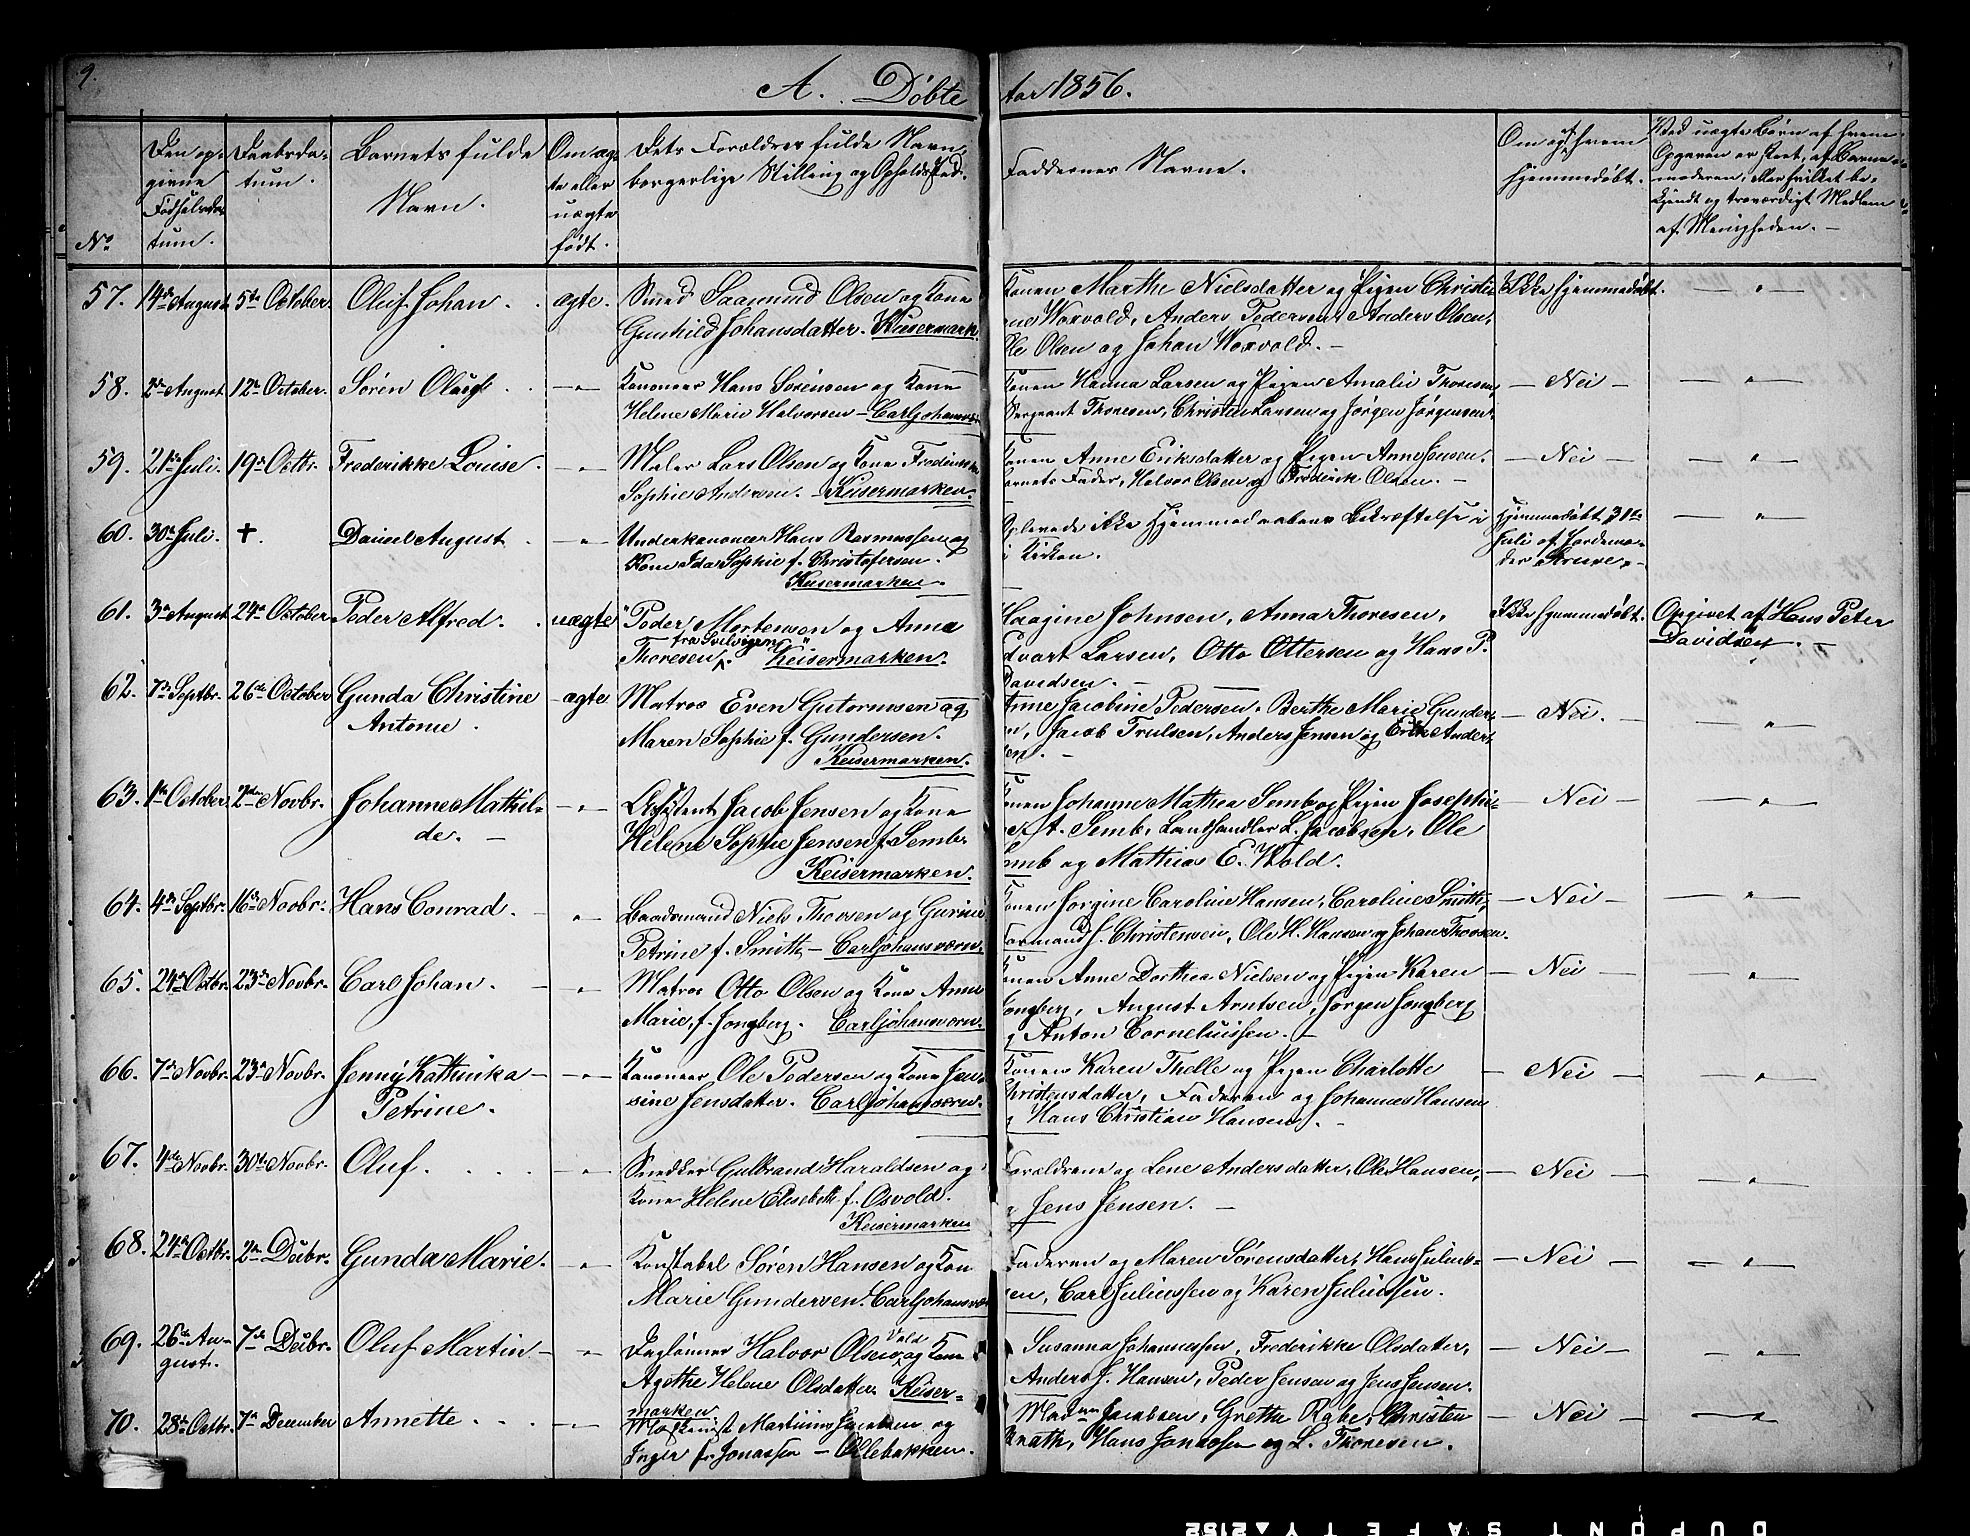 9.
A. Døbte Aar 1856.
No
Den op-
givne
Fødselsda-
tum.
Daabsda-
tum.
Barnets fulde
Navn.
Om ægte
eller
uægte
født.
Dets Forældres fulde Navn,
borgerlige Stilling og Opholdssted.
Faddernes Navne.
Om og af hvem
hjemmedøbt.
Ved uægte Børn af hvem
Opgaven er skeet, af Barne-
moderen, eller hvilket be-
kjendt og troværdigt Medlem
af Menigheden. –
57. 14de August 5te October Oluf Johan. ægte. Smed Saamund Olsen og Kone
Gunhild Johansdatter. Keisermark.
Konen Marthe Nielsdatter og Pigen Christi-
ane Woxvold, Anders Pedersen, Anders Olsen,
Ole Olsen og Johan Woxvold. –
Ikke hjemmedøbt. — " —
58. 2de August 12te October. Søren Olaus — " — Kanoneer Hans Sörensen og Kone
Helene Marie Halvorsen – Carljohansværn
Konen Hanna Larsen og Pigen Amalie Thoresen,
Sergeant Thoresen, Christen Larsen og Jørgen Jørgensen.
— Nei — — " —
59. 21de Juli. 19de Octbr. Frederikke Louise. — " — Maler Lars Olsen og Kone Frederikke
Sophie Andersen. – Keisermarken.
Konen Anne Eriksdatter og Pigen Anne Jensen.
Barnets Fader, Halvor Olsen og Frederik Olsen. –
— Nei — — " —
60. 30te Juli. +. Daniel August — " — Underkanoneer Hans Rasmussen og
Kone Ida Sophie f. Christofersen.
Keisermarken.
Oplevede ikke Hjemmedaabens Bekræftelse i
i Kirken.
Hjemmedøbt 31te
Juli af Jordemo-
der Struve. – — " —
61. 3de August 24de October Peder Alfred. uægte "Peder Mortensen og Anna
Thoresen, fra Selvigen" Keisermarken.
Haagine Johnsen, Anna Thoresen,
Edvart Larsen, Otto Ottersen og Hans P.
Davidsen. –
Ikke hjemmedøbt. Opgivet af Hans Peter
Davidsen.
62. 7de Septbr. 26de October Gunda Christine
Antonie. ægte Matros Even Gutormsen og
Maren Sophie f. Gundersen.
Keisermarken.
Anne Jacobine Pedersen, Berthe Marie Gunder-
sen, Jacob Trulsen, Anders Jensen og Erik Ander-
sen. –
— Nei. — — " —
63. 1ste October. 2den Novbr. Johanne Mathil-
de. – — " — Assistent Jacob Jensen og Kone
Helene Sophie Jensen f. Semb.
Keisermarken.
Konen Johanne Mathea Semb og Pigen Josephi-
ne A. Semb, Landhandler L. Jacobsen, Ole
Semb og Mathias E. Wold.
— Nei — — " —
64. 4de Septbr. 16de Novbr. Hans Conrad. — " — Baadsmand Niels Thorsen og Gurine
Petrine f. Smitt – Carljohansværn.
Konen Jorgine Caroline Hansen, Caroline Smitt,
Formand J. Christensen, Ole H. Hansen og Johan Thorsen.
— Nei — — " —
65. 24de Octbr. 23de Novbr. Carl Johan. — " — Matros Otto Olsen og Kone Anne
Marie, f. Jongberg. Carljohansværn.
Konen Anne Dorthea Nielsen og Pigen Karen
Jongberg, August Arntsen, Jørgen Jongberg
og Anton Corneliussen. –
— Nei — — " —
66. 7de Novbr. 23de Novbr. Jenny Kathinka
Petrine. — " — Kanoneer Ole Pedersen og Kone Jen-
sine Jensdatter. Carljohansværn.
Konen Karen Thelle og Pigen Charlotte
Christensdatter, Faderen og Johannes Hansen
og Hans Christian Hansen. –
— Nei — — " —
67. 4de Novbr. 30te Novbr. Oluf. — " — Snedker Gulbrand Haraldsen og
Kone Helene Elisabeth f. Osvold.
Keisermarken
Forældrene og Lene Andersdatter, Ole Hansen,
og Jens Jensen. –
— Nei — — " —
68. 24de Octbr. 2den Decbr. Gunda Marie. — " — Konstabel Søren Hansen og Kone
Marie Gundersen. Carljohansværn
Faderen og Maren Sørensdatter, Hans Julius-
sen, Carl Juliussen og Karen Juliussen.
— Nei — — " —
69. 26de Au-
gust. 7de Decbr. Oluf Martin — " — Daglønner Halvor Olsen Vold og Kone
Agethe Helene Olsdatter. Keiser-
marken
Susanna Johannessen, Frederikke Olsdatter,
Anders J. Hansen, Peder Jensen og Jens Jensen.
— Nei — — " —
70. 28de Octbr. 7de December Annette. — " — Maskinist Martinius Jacobsen og
Inger f. Jonassen – Ollebakken.
Madm Jacobsen, Grethe Rabe, Christen
Knath, Hans Jonassen og L. Thoresen.
— Nei — — " —
DUPONT SAFETY 2152